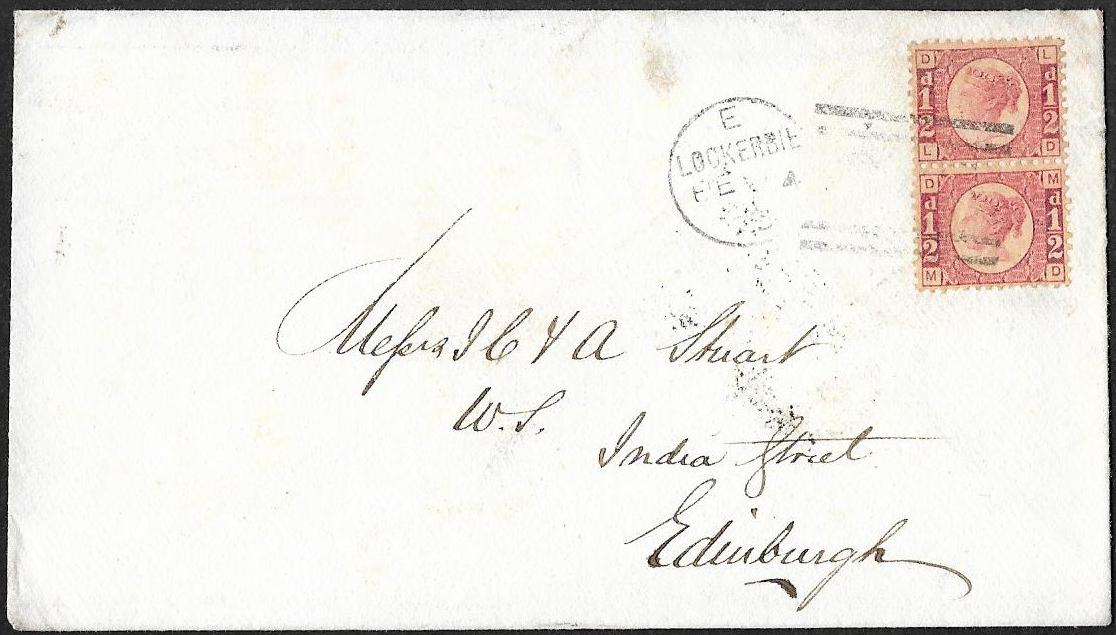 D L
d 1/2 d 1/2
L D
D M
d 1/2 d 1/2
M D
E
LOCKERBIE
4
Messrs J C & A Stuart
W.S.
India Street
Edinburgh